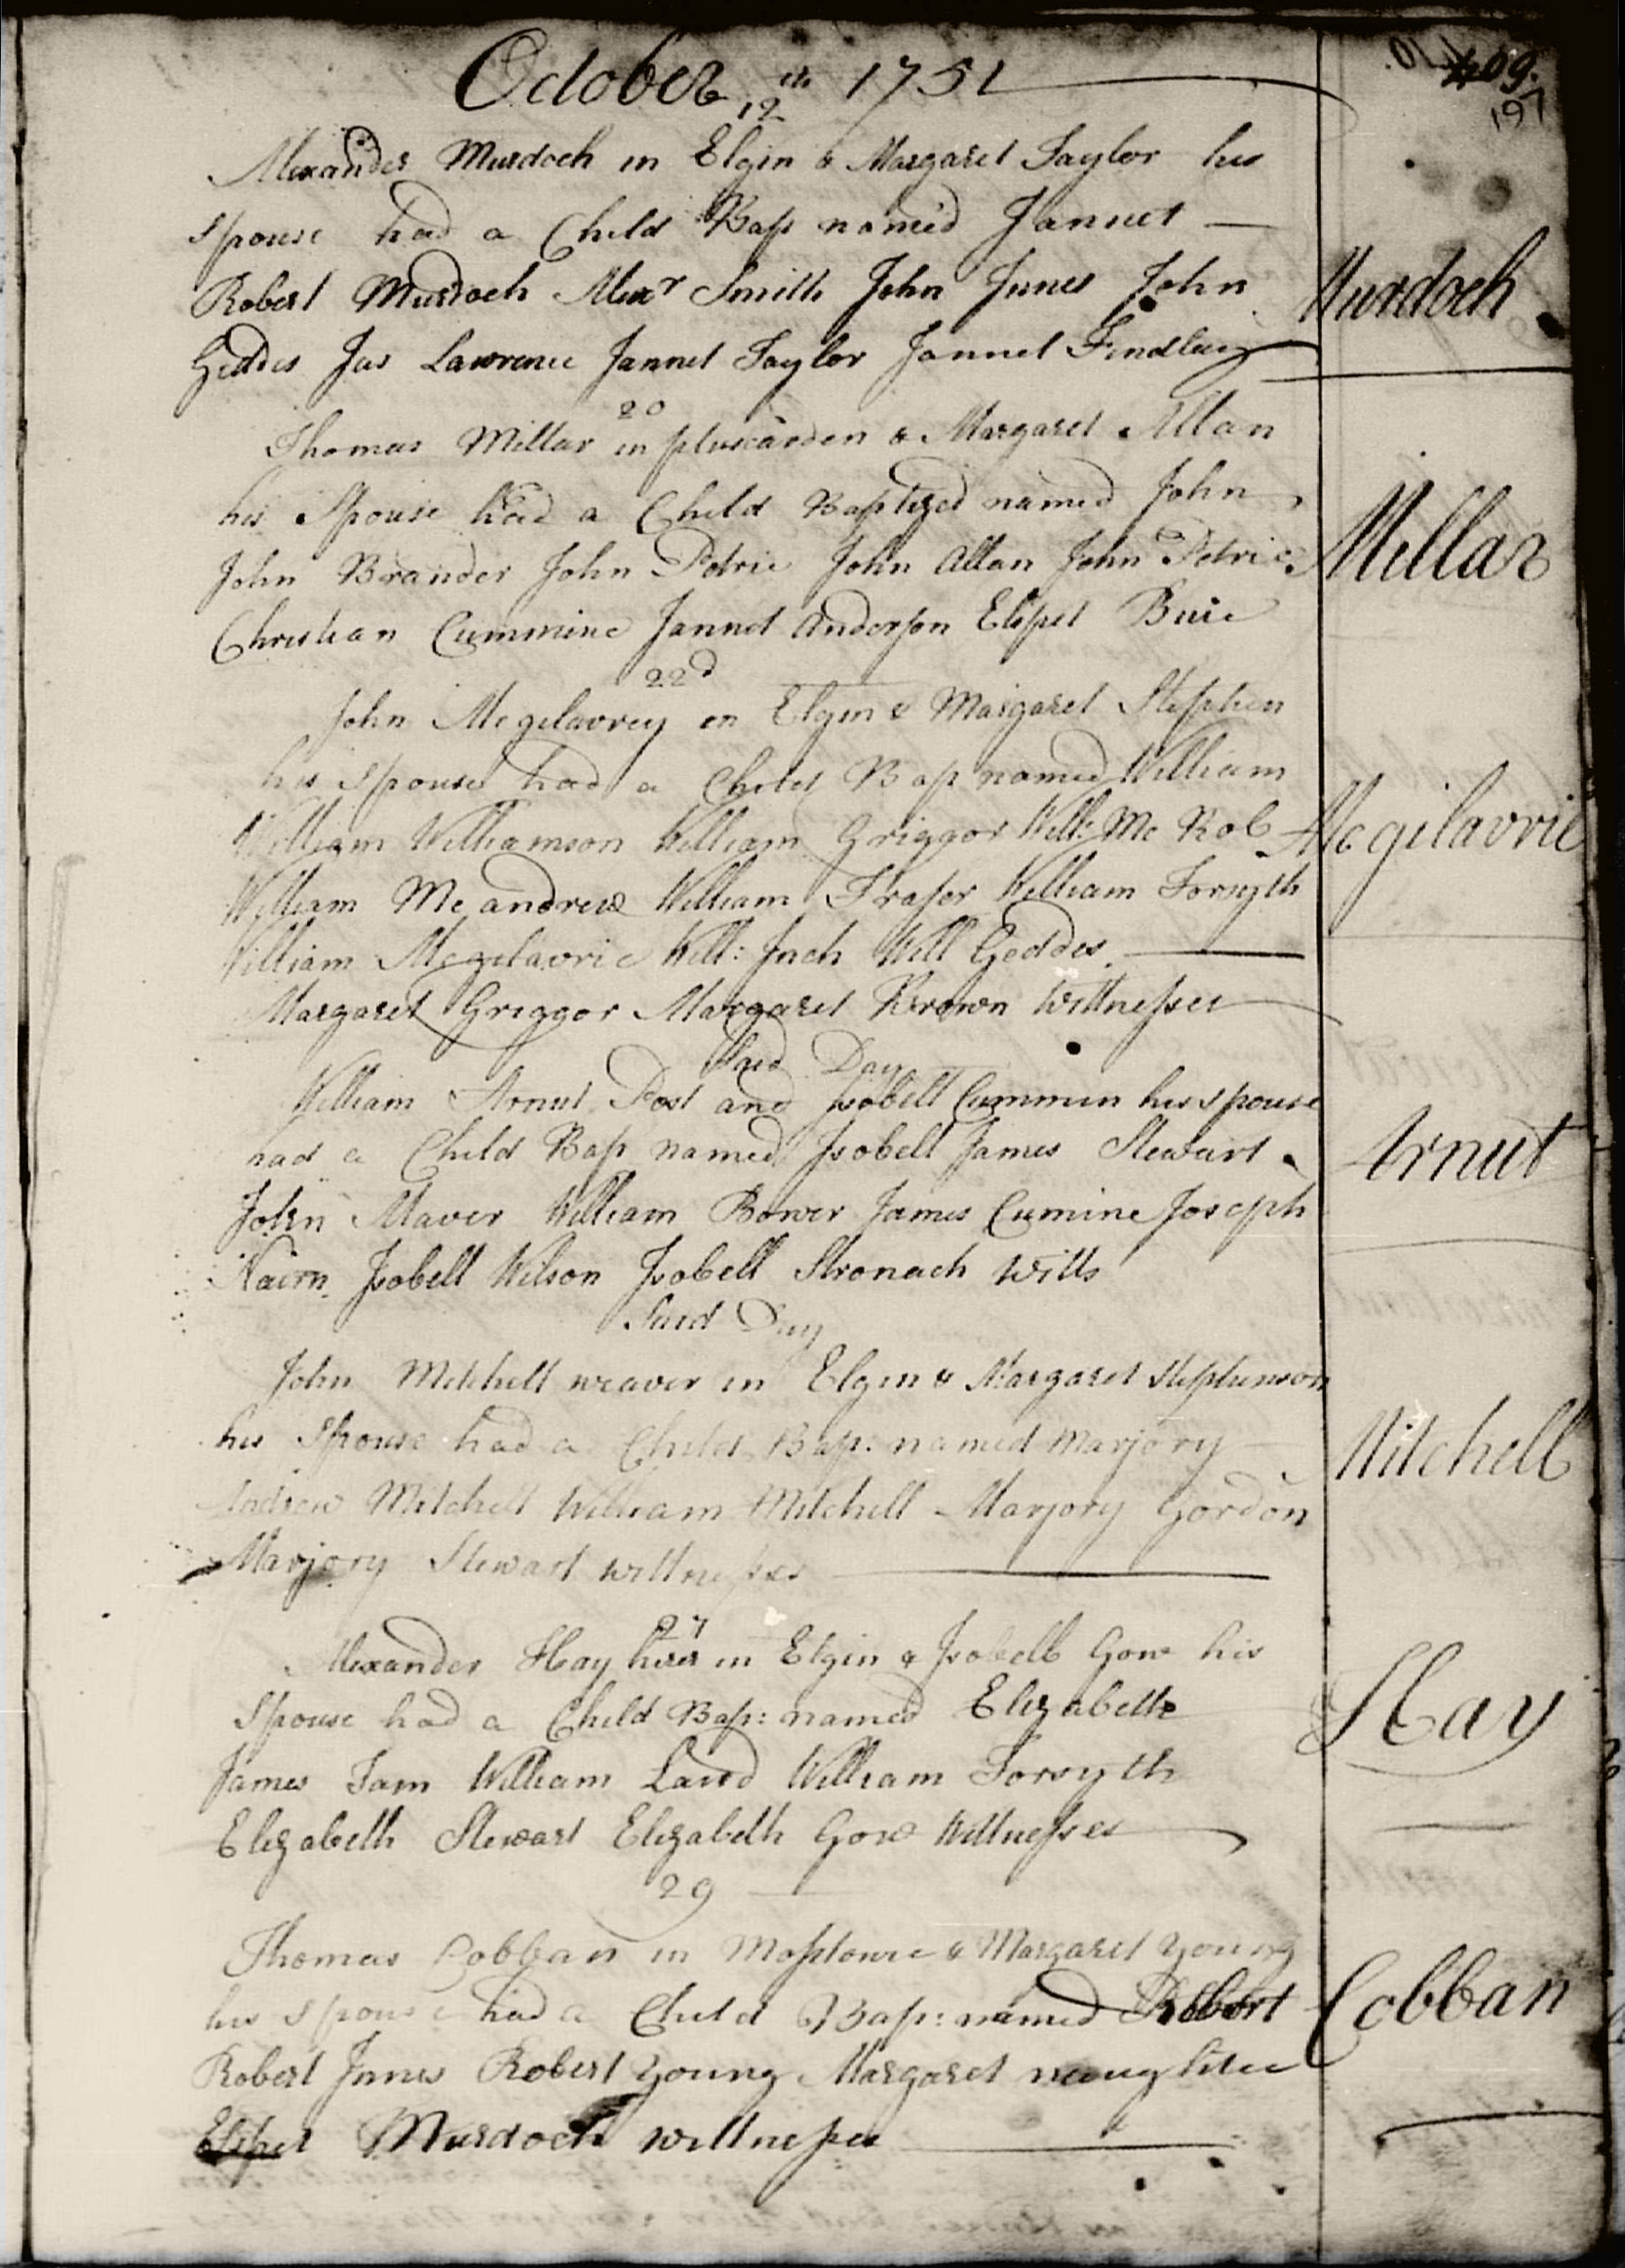 409.
197
October 12th 1751
Alexander Murdoch in Elgin & Margaret Taylor his
Spouse had a Child Bap named Jannet
Robert Murdoch Alexr Smith John Innes John
Geddes Jas Lawrence Jannet Taylor Jannet Findlay
Murdoch
20
Thomas Millar in pluscarden & Margaret Allan
his Spouse had a Child Baptized named John
John Brander John Petrie John Allan John Petrie
Christian Cummine Jannet Anderson Elspet Buie
Millar
22d
John Mcgilavrey in Elgin & Margaret Stephen
his Spouse had a Child Bap named William
William Williamson William Griggor Will: Mc Rob
William Mcandrew William Fraser William Forsyth
William Mcgilavrie Will: Inch Will Geddes
Margaret Griggor Margaret Brown Wittnesses
Mcgilavrie
Said Day
William Arnut Post and Isobell Cummin his spouse
had a Child Bap named Isobell James Stewart
John Maver William Bower James Cumine Joseph
Nairn Isobell Wilson Isobell Stronach Witts
Arnut
Said Day
John Mitchell weaver in Elgin & Margaret Stephenson
his Spouse had a Child Bap: named Marjory
Andrew Mitchell William Mitchell Marjory Gordon
Marjory Stewart wittnesses
Mitchell
27
Alexander Hay in Elgin & Isobell Gow his
Spouse had a Child Bap: named Elizabeth
James Tam William Laird William Forsyth
Elizabeth Stewart Elizabeth Gow Wittnesses
Hay
29
Thomas Cobban in Mosstowie & Margaret Young
his Spouse had a Child Bap: named Robert
Robert Innes Robert Young Margaret
Elspet Murdoch wittnesses
Cobban